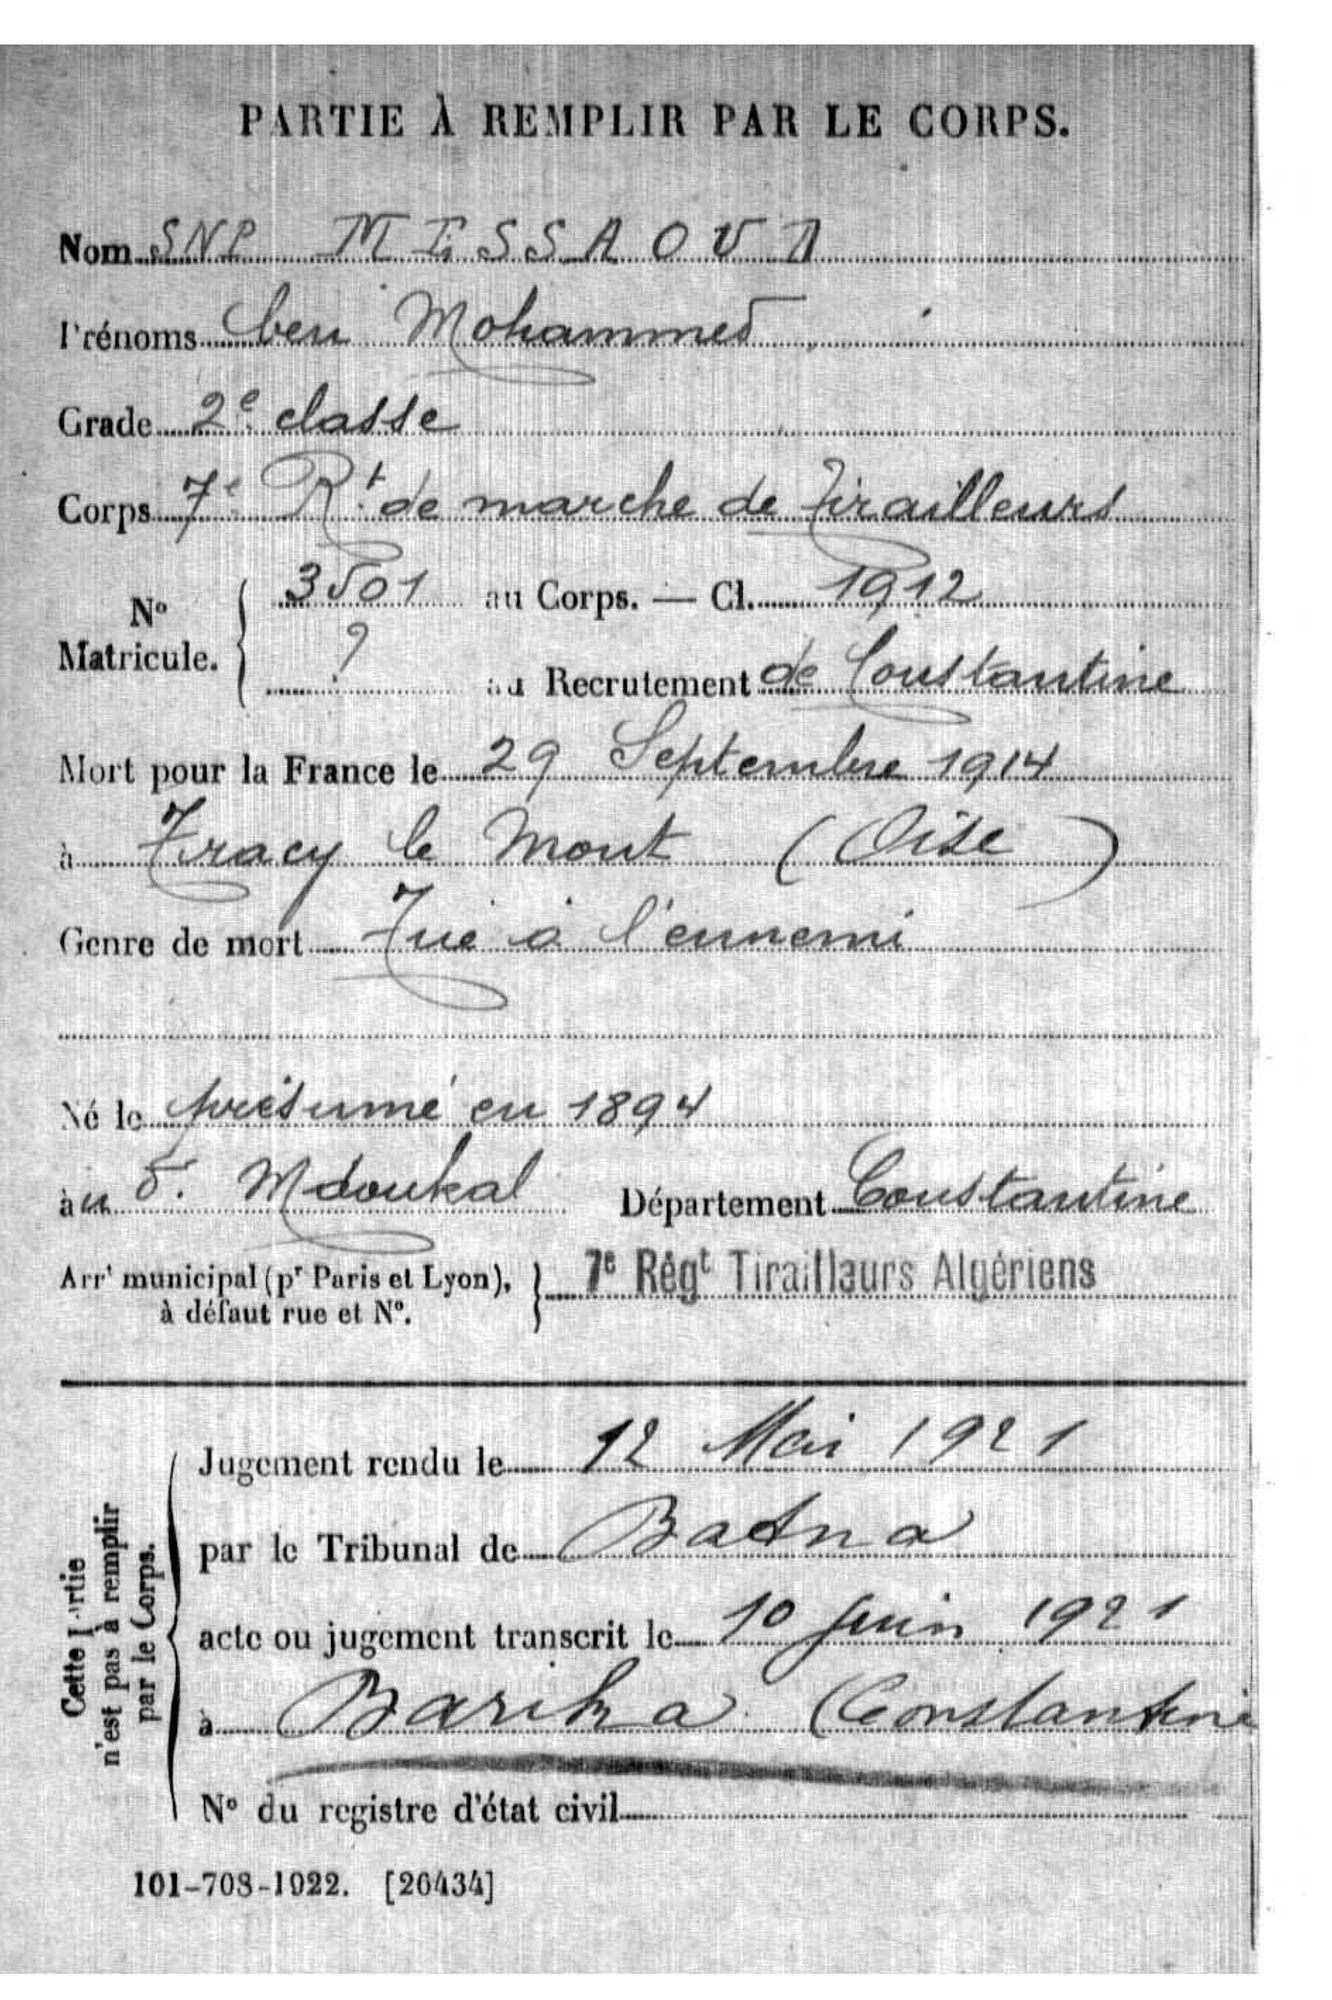 PARTIE À REMPLIR PAR LE CORPS.
Nom SNP MESSAOUD
Prénoms ben Mohammed
Grade 2e classe
Corps 7e Rt de marche de Tirailleurs
No Matricule. 3501 au Corps. — Cl. 1912
? au Recrutement de Constantine
Mort pour la France le 29 Septembre 1914
à Tracy le Mont (Oise)
Genre de mort Tué à l'ennemi
Né le présumé en 1894
à u d. Mdoukal Département Constantine
Arrt municipal (pr Paris et Lyon), à défaut rue et No. 7e Régt Tirailleurs Algériens
Cette Partie n'est pas à remplir par le Corps.
Jugement rendu le 12 Mai 1921
par le Tribunal de Batna
acte ou jugement transcrit le 10 juin 1921
à Barika (Constantine
No du registre d'état civil
101-708-1922. [26434]